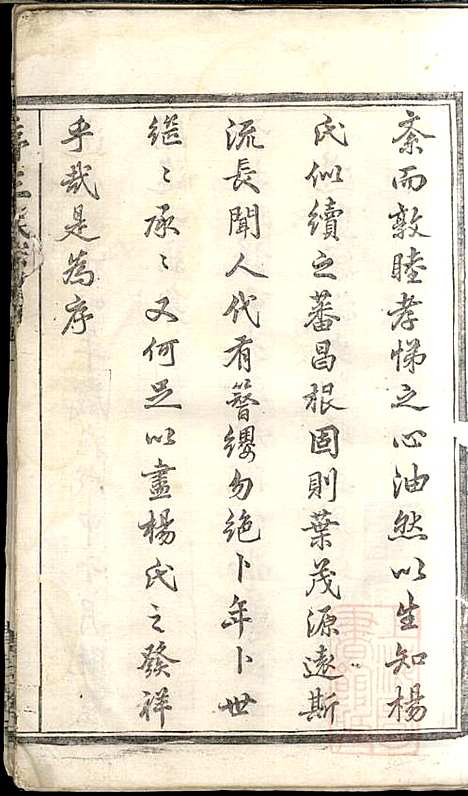 紊而敦睦孝悌之心油然以生知楊
氏似續之蕃昌根固則葉茂源遠斯
流長聞人代有簪纓勿絶卜年卜世
繩〻承〻又何足以盡楊氏之發祥
乎哉是為序